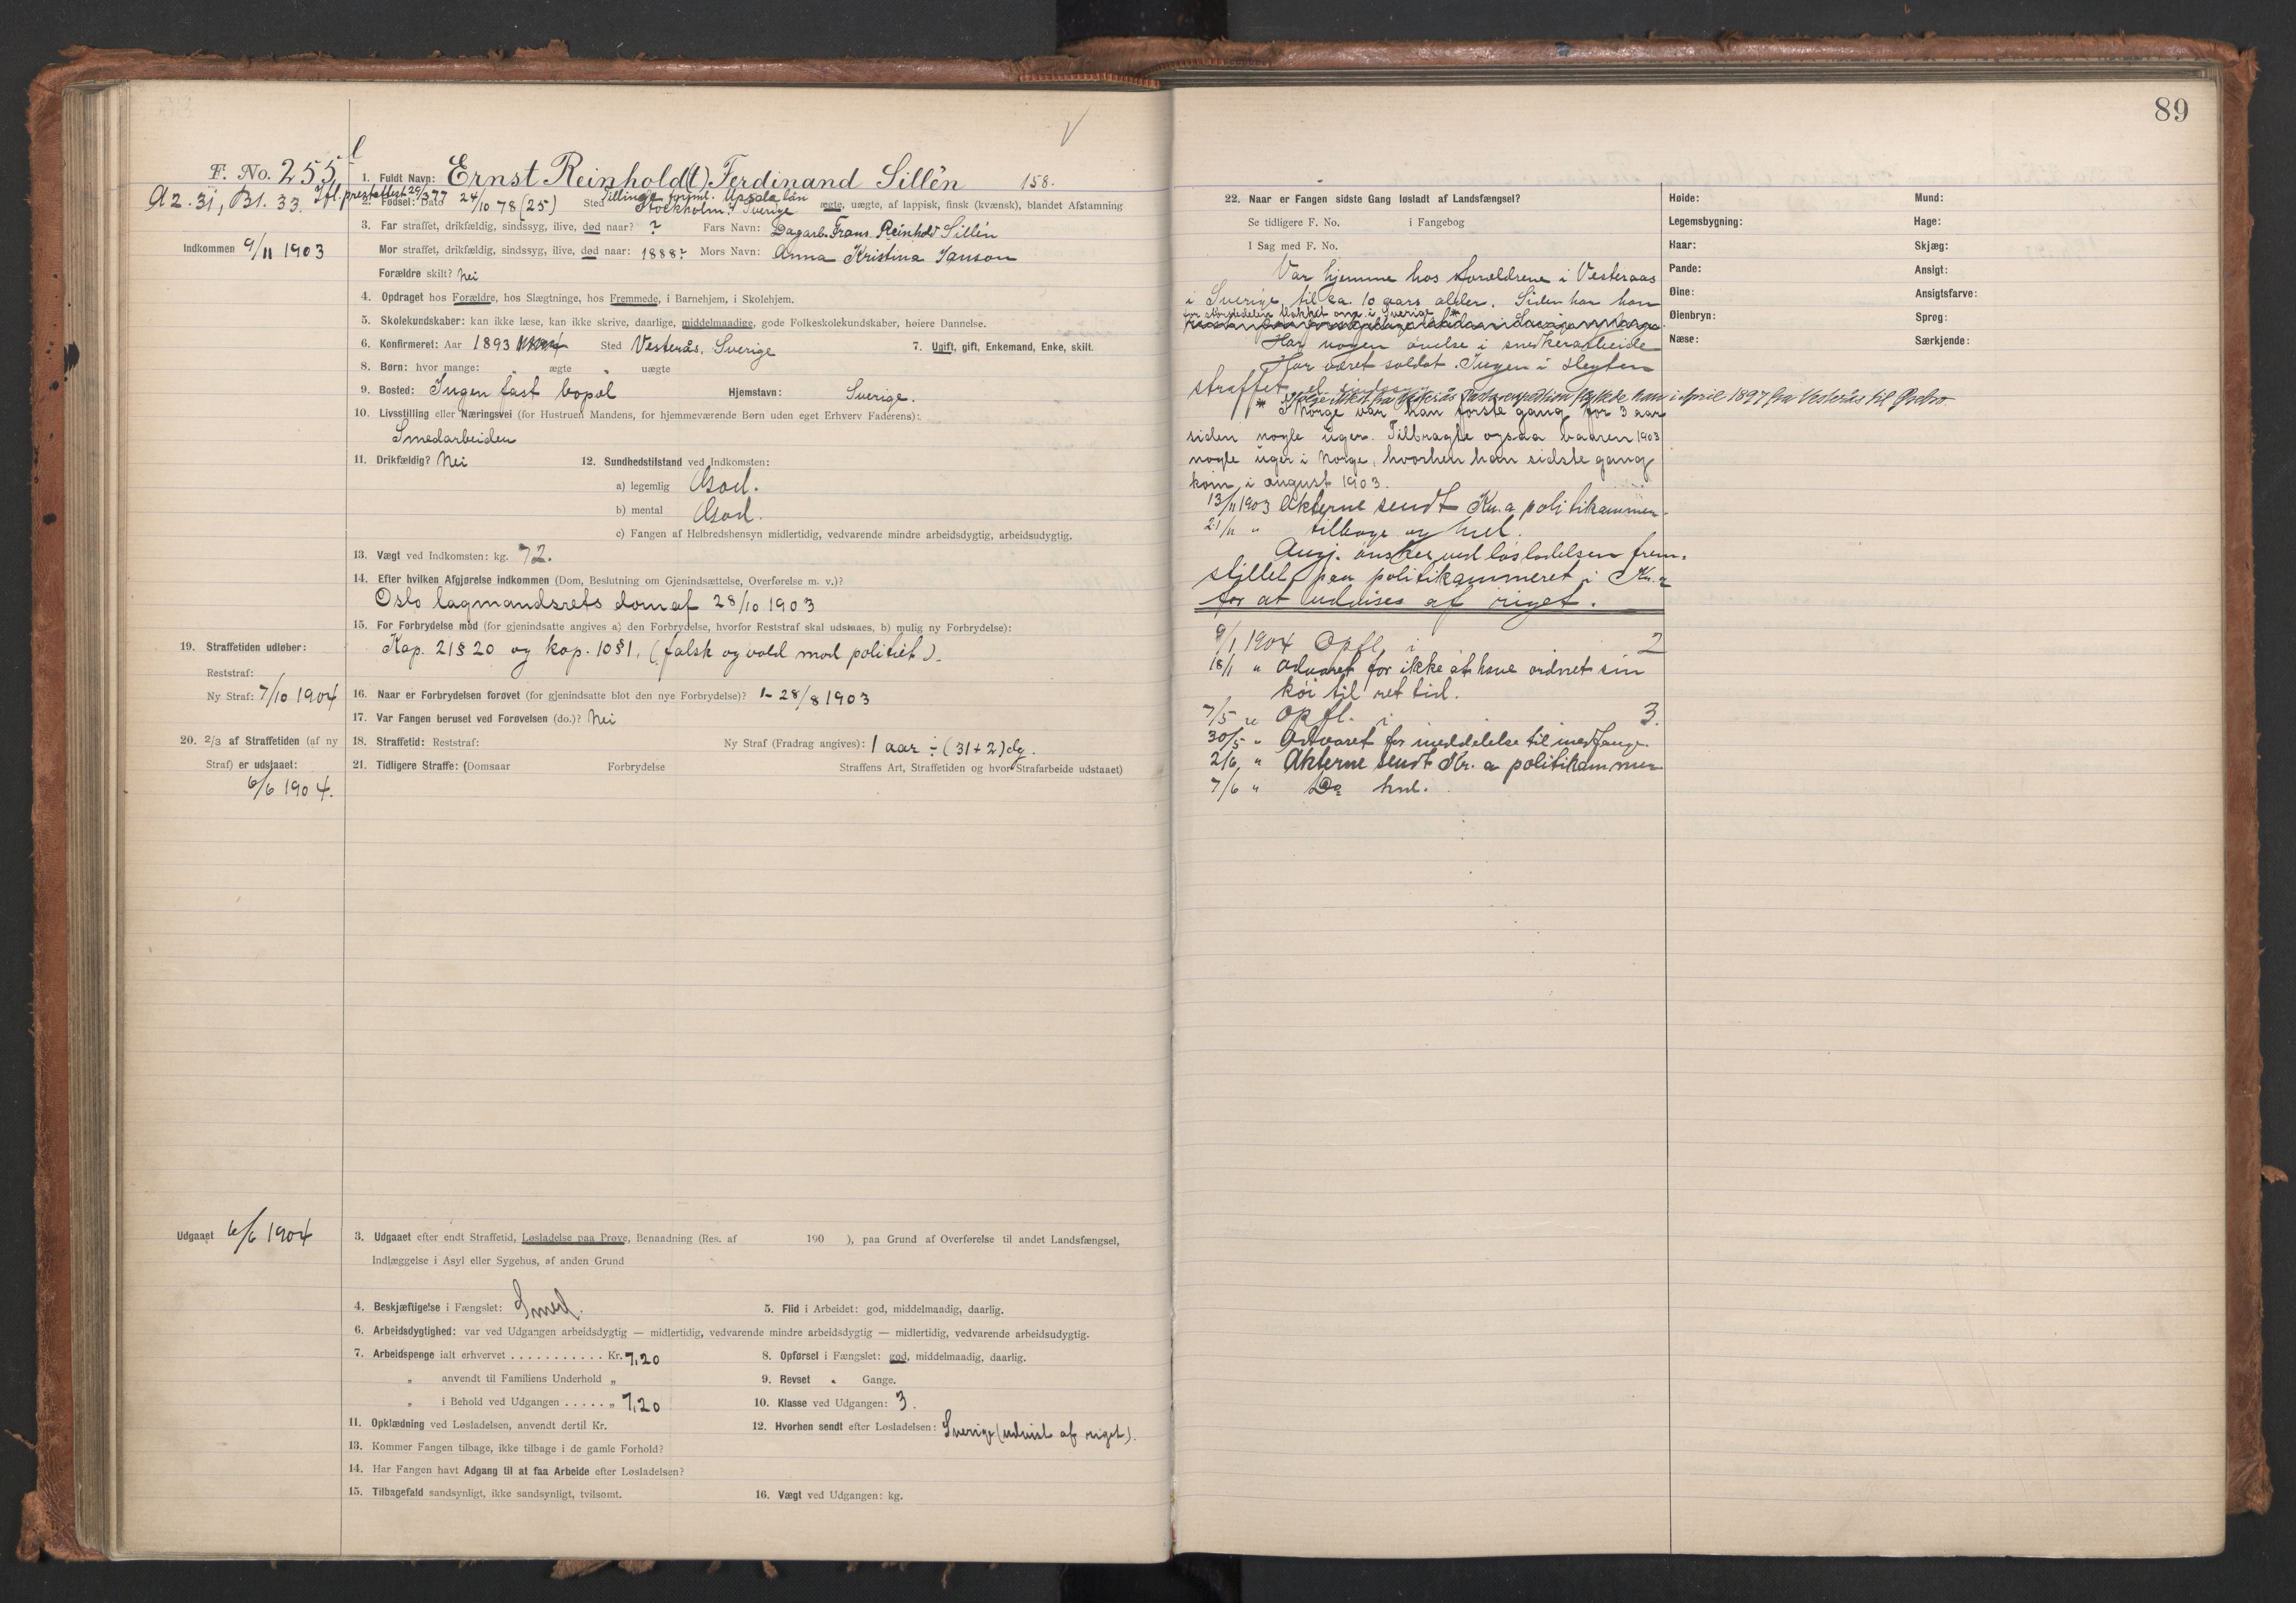 89
F. No. 255
A 2. 31, Bl. 33.
Indkommen 9/11 1903
1. Fuldt Navn: Ernst Reinhold(t) Ferdinand Sillén 158.
Ifl. prestattest 29/3 97
Tillinge forsml. Upsala län
2. Fødsel: Dato 24/10 78 (25) Sted Stockholm? Sverige ægte, uægte, af lappisk, finsk (kvænsk), blandet Afstamning
3. Far straffet, drikfældig, sindssyg, ilive, død naar? ? Fars Navn: Dagarb. Frans Reinhold Sillén
Mor straffet, drikfældig, sindssyg, ilive, død naar: 1888? Mors Navn: Anna Kristina Janson
Forældre skilt? Nei
4. Opdraget hos Forældre, hos Slægtninge, hos Fremmede, i Barnehjem, i Skolehjem.
5. Skolekundskaber: kan ikke læse, kan ikke skrive, daarlige, middelmaadige, gode Folkeskolekundskaber, høiere Dannelse.
6. Konfirmeret: Aar 1893 Sted Vesterås, Sverige 7. Ugift, gift, Enkemand, Enke, skilt.
8. Børn: hvor mange: " ægte " uægte
9. Bosted: Ingen fast bopæl Hjemstavn: Sverige.
10. Livsstilling eller Næringsvei (for Hustruen Mandens, for hjemmeværende Børn uden eget Erhverv Faderens):
Smedarbeider
11. Drikfældig? Nei 12. Sundhedstilstand ved Indkomsten:
a) legemlig God.
b) mental God.
c) Fangen af Helbredshensyn midlertidig, vedvarende mindre arbeidsdygtig, arbeidsudygtig.
13. Vægt ved Indkomsten: kg. 72.
14. Efter hvilken Afgjørelse indkommen (Dom, Beslutning om Gjenindsættelse, Overførelse m. v.)?
Oslo lagmandsrets dom af 28/10 1903
15. For Forbrydelse mod (for gjenindsatte angives a) den Forbrydelse, hvorfor Reststraf skal udstaaes, b) mulig ny Forbrydelse):
Kap. 21 § 20 og kap. 10 § 1. (falsk og vold mod politiet).
19. Straffetiden udløber:
Reststraf:
Ny Straf: 7/10 1904
16. Naar er Forbrydelsen forøvet (for gjenindsatte blot den nye Forbrydelse)? 1- 28/8 1903
17. Var Fangen beruset ved Forøvelsen (do.)? Nei
20. 2/3 af Straffetiden (af ny Straf) er udstaaet:
6/6 1904.
18. Straffetid: Reststraf: Ny Straf (Fradrag angives): 1 aar ÷ (31+2) dg.
21. Tidligere Straffe: (Domsaar Forbrydelse Straffens Art, Straffetiden og hvor Strafarbeide udstaaet)
Udgaaet 6/6 1904
3. Udgaaet efter endt Straffetid, Løsladelse paa Prøve, Benaadning (Res. af 190 ), paa Grund af Overførelse til andet Landsfængsel,
Indlæggelse i Asyl eller Sygehus, af anden Grund
4. Beskjæftigelse i Fængslet: Smed. 5. Flid i Arbeidet: god, middelmaadig, daarlig.
6. Arbeidsdygtighed: var ved Udgangen arbeidsdygtig — midlertidig, vedvarende mindre arbeidsdygtig — midlertidig, vedvarende arbeidsudygtig.
7. Arbeidspenge ialt erhvervet . . . . . . . . . . . Kr. 7,20 8. Opførsel i Fængslet: god, middelmaadig, daarlig.
„ anvendt til Familiens Underhold „ 9. Revset " Gange.
„ i Behold ved Udgangen . . . . . „ 7,20 10. Klasse ved Udgangen: 3.
11. Opklædning ved Løsladelsen, anvendt dertil Kr. 12. Hvorhen sendt efter Løsladelsen: Sverige (udvist af riget).
13. Kommer Fangen tilbage, ikke tilbage i de gamle Forhold?
14. Har Fangen havt Adgang til at faa Arbeide efter Løsladelsen?
15. Tilbagefald sandsynligt, ikke sandsynligt, tvilsomt. 16. Vægt ved Udgangen: kg.
22. Naar er Fangen sidste Gang løsladt af Landsfængsel?
Se tidligere F. No. i Fangebog
I Sag med F. No.
Var hjemme hos forældrene i Vesteraas
i Sverige til ca. 10 aars alder. Siden har han
for størstedelen flakket om i Sverige *
Har nogen øvelse i snedkerarbeide
Har været soldat. Ingen i slegten
straffet el. sindssyg
* Ifølge Attest fra Vesterås flyttede han i April 1897 fra Vesterås til
I Norge var han første gang for 3 aar
siden nogle uger. Tilbragte ogsaa vaaren 1903
nogle uger i Norge, hvorhen han sidste gang
kom i august 1903.
13/11 1903 Akterne sendt Kr.a politikammer.
21/11 " tilbage og hnl.
Angj. ønskes ved løsladelsen frem-
stillet paa politikammeret i Kr.a
for at udvises af riget.
9/1 1904 Opfl. i 2
18/1 " Advaret for ikke at have ordnet sin
køi til ret tid.
7/5 " Opfl. i 3.
30/5 " Advaret for meddelelse til medfange.
2/6 " Akterne sendt Kr. a politikammer
7/6 " Do hnl.
Høide: Mund:
Legemsbygning: Hage:
Haar: Skjæg:
Pande: Ansigt:
Øine: Ansigtsfarve:
Øienbryn: Sprog:
Næse: Særkjende: